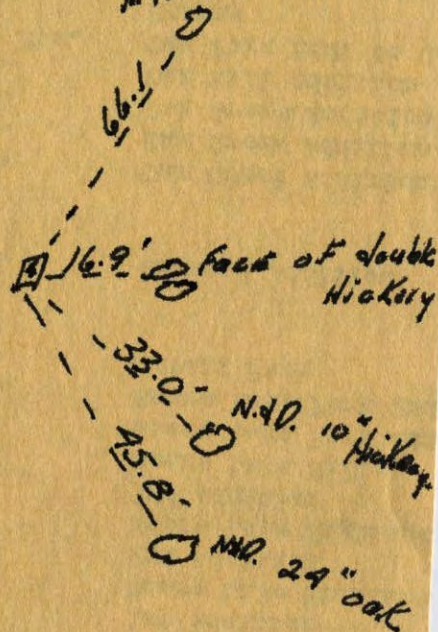 66.1
16.9' Face of double
Hickory
33.0' N.&D. 10" Hickory
45.8' N&D. 24" oak